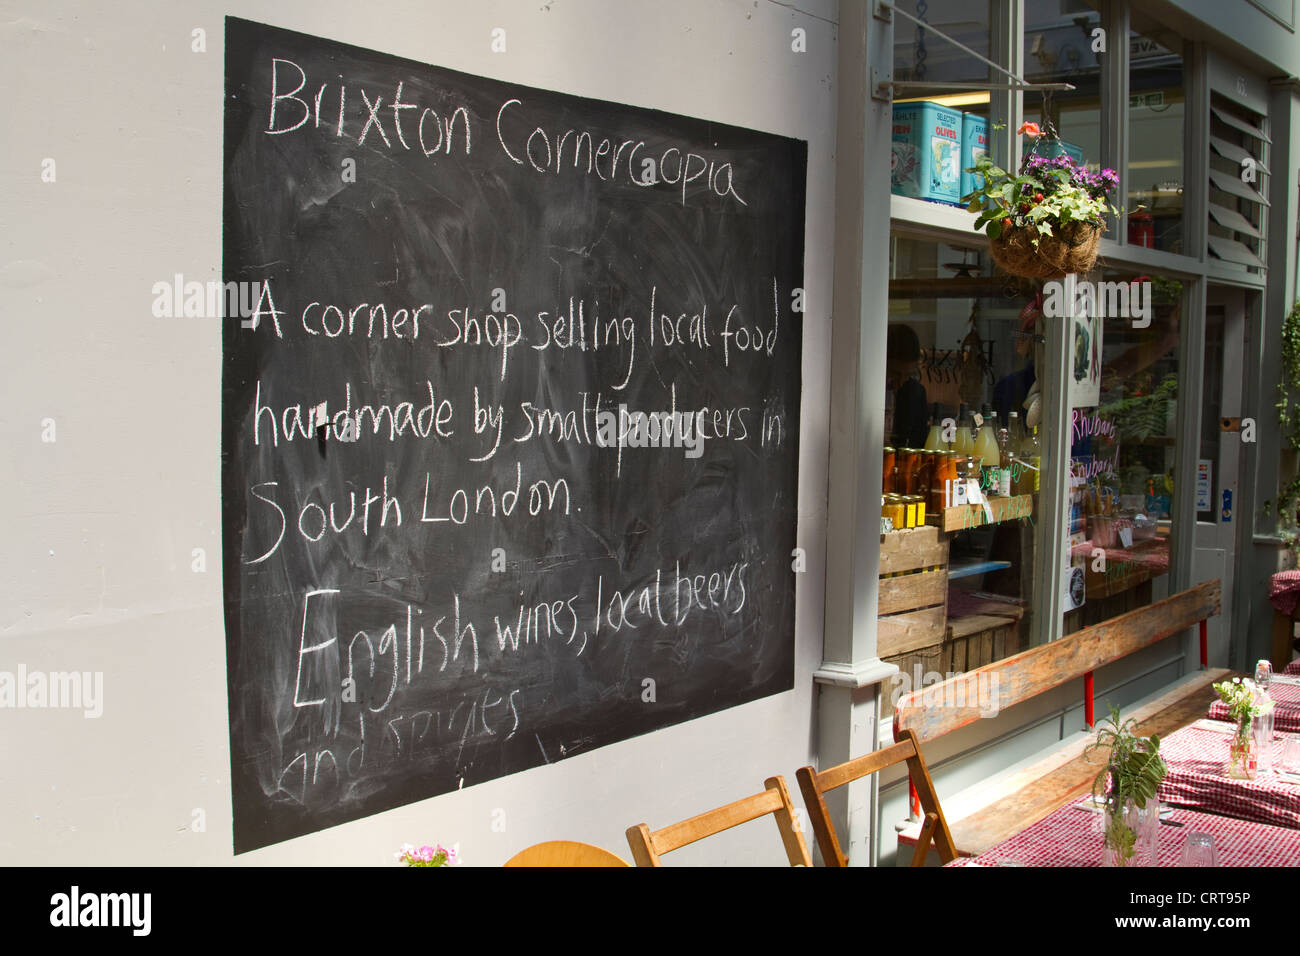 Brixton Cornercopia
A corner shop selling local food
handmade by small producers in
South London.
English wines, local beers
and spirits
SELECTED
OLIVES
Rhubarb
Rhubarb
alamy
Image ID: CRT95P
www.alamy.com